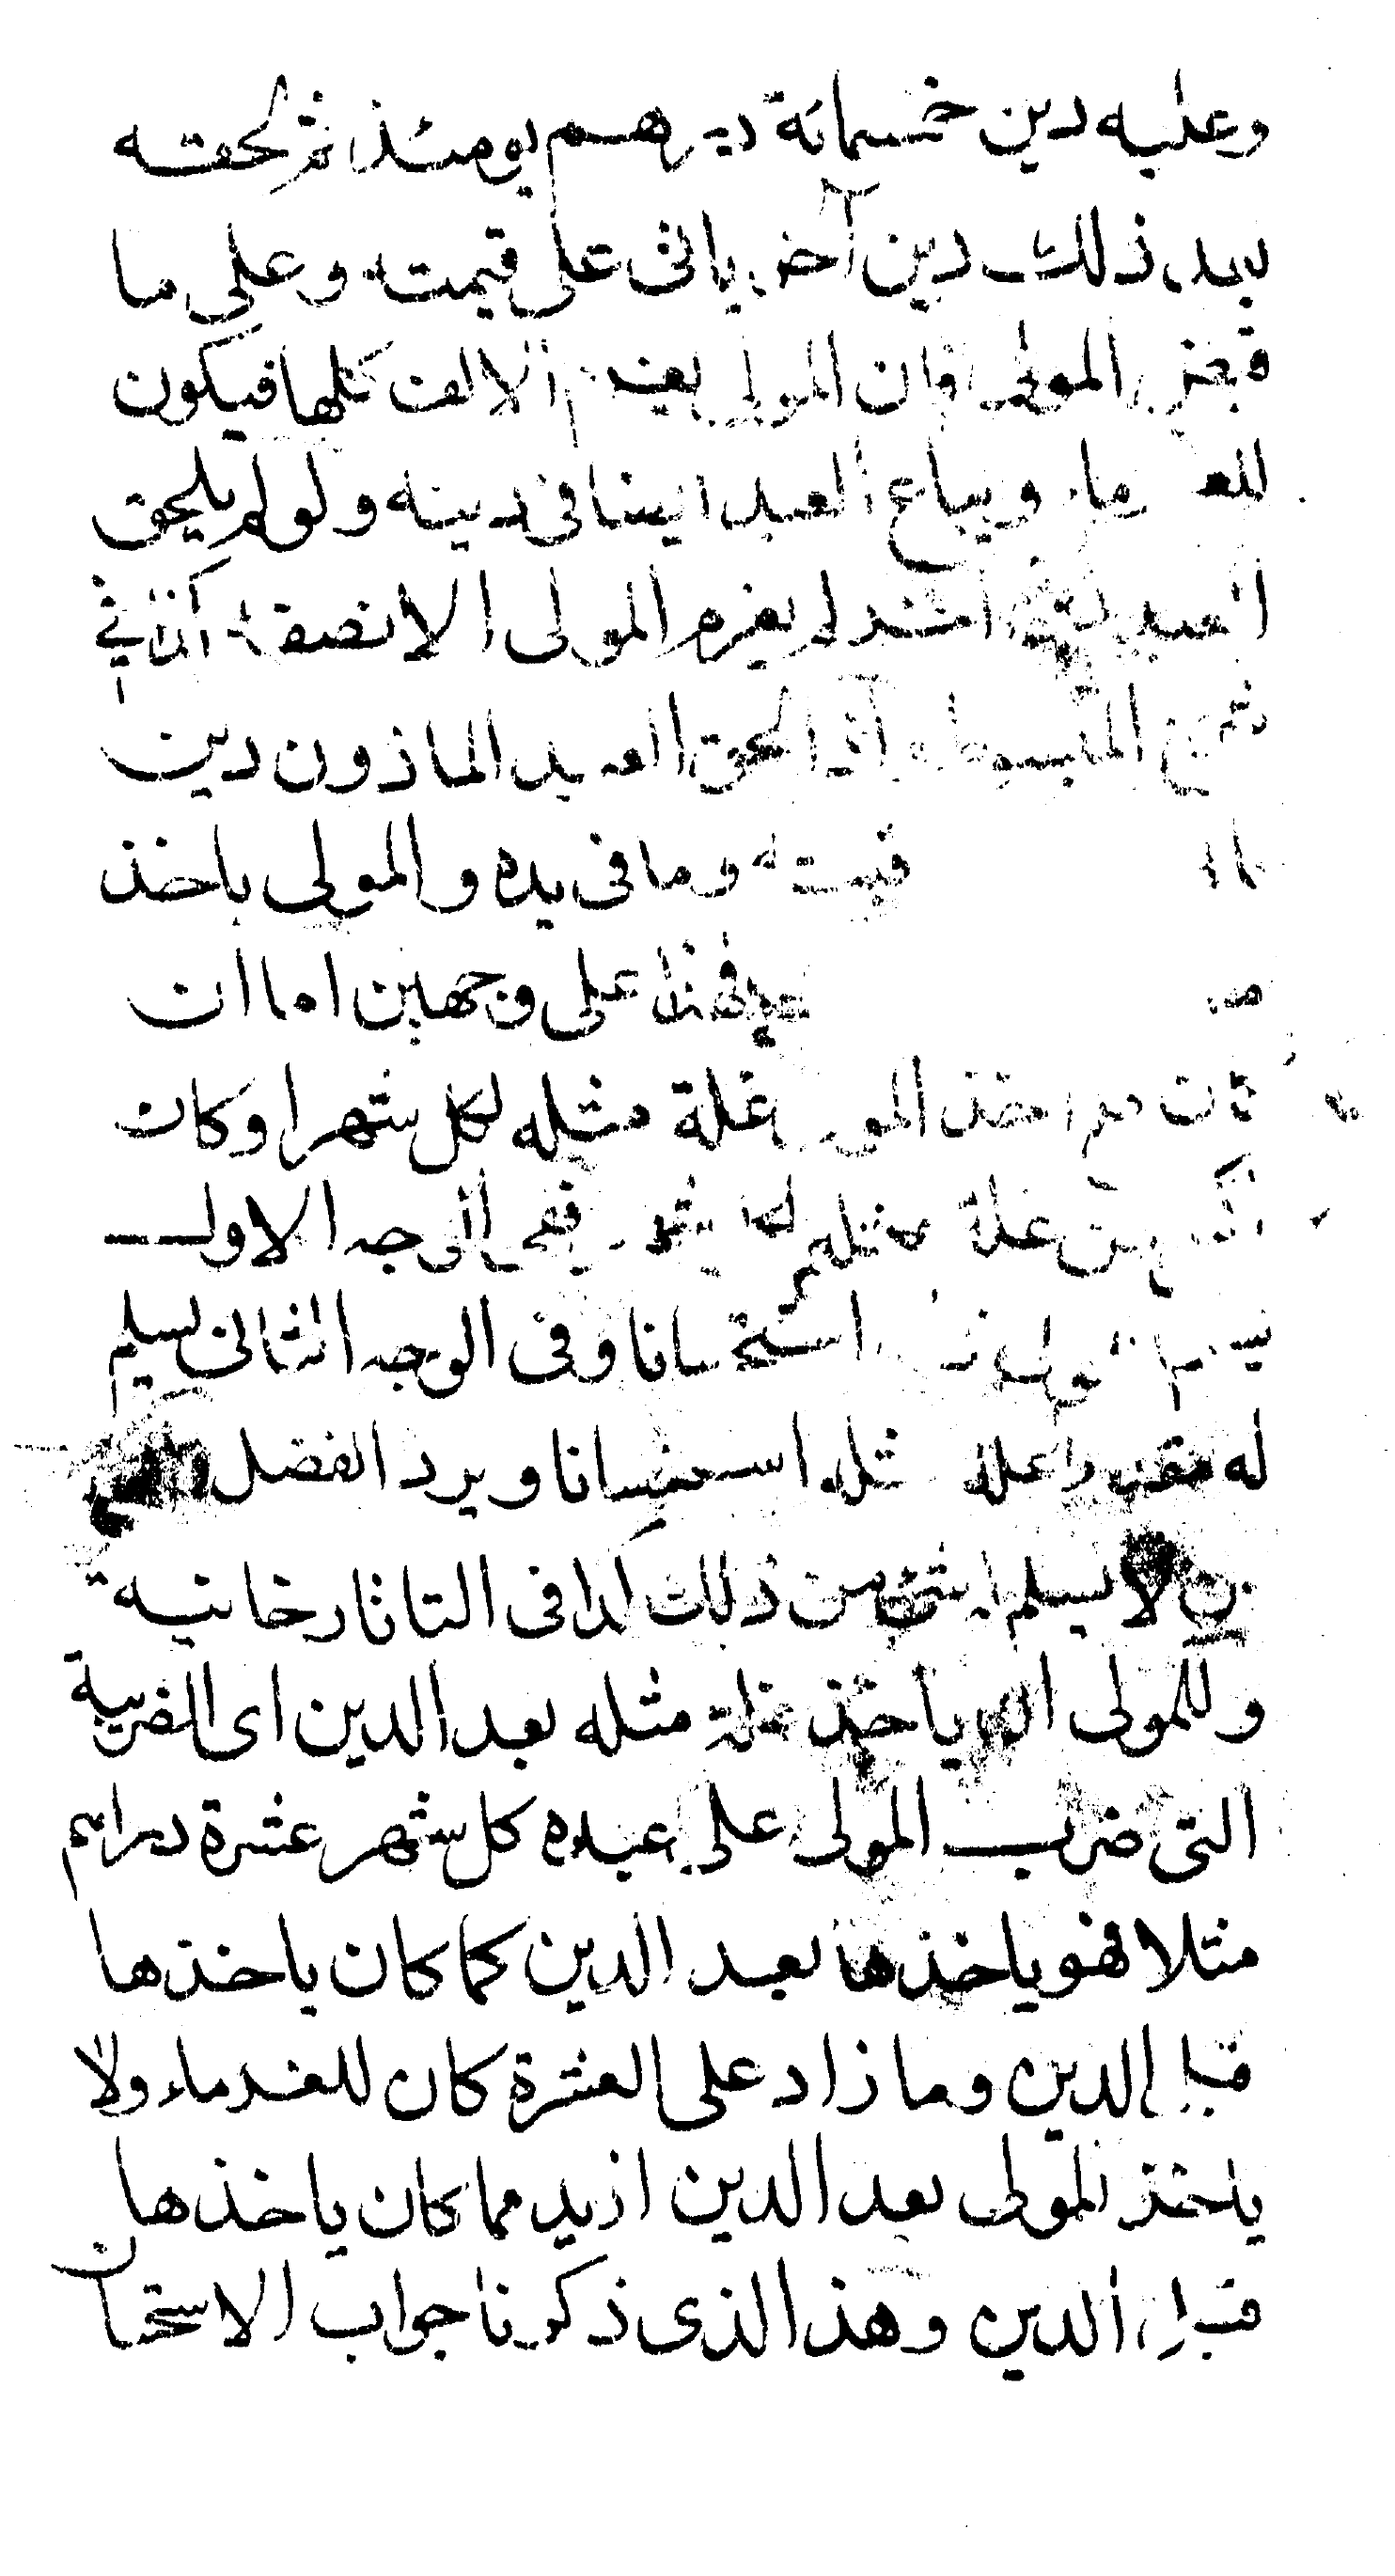 وعليه دين خمسمائة درهم يومئذ ثم لحقه
بعد ذلك دين آخر يأتى على قيمته وعلى ما
قبض المولى فان المولى يغرم الالف كلها فيكون
للغرماء ويباع العبد ايضا فى دينه ولو لم يلحق
العبد دين آخر لم يغرم المولى الا نصفا كذا فى
شرح المبسوط واذا لحق العبد الماذون دين
قيمته وما فى يده والمولى ياخذ
فهذا على وجهين اما ان
كان اخذ المولى غلة مثله لكل شهر او كان
اكثر من غلة مثله شهر ففى الوجه الاول
استحسانا وفى الوجه الثانى يسلم
له مقدار غلة مثله استحسانا ويرد الفضل
ان لا يسلم له شئ من ذلك كذا فى التاتارخانية
وللمولى ان ياخذ غلة مثله بعد الدين اى الضريبة
التى ضرب المولى على عبده كل شهر عشرة دراهم
مثلا فهو ياخذها بعد الدين كما كان ياخذها
قبل الدين وما زاد على العشرة كان للغرماء ولا
ياخذ المولى بعد الدين ازيد مما كان ياخذها
قبل الدين وهذا الذى ذكرنا جواب الاستحسان